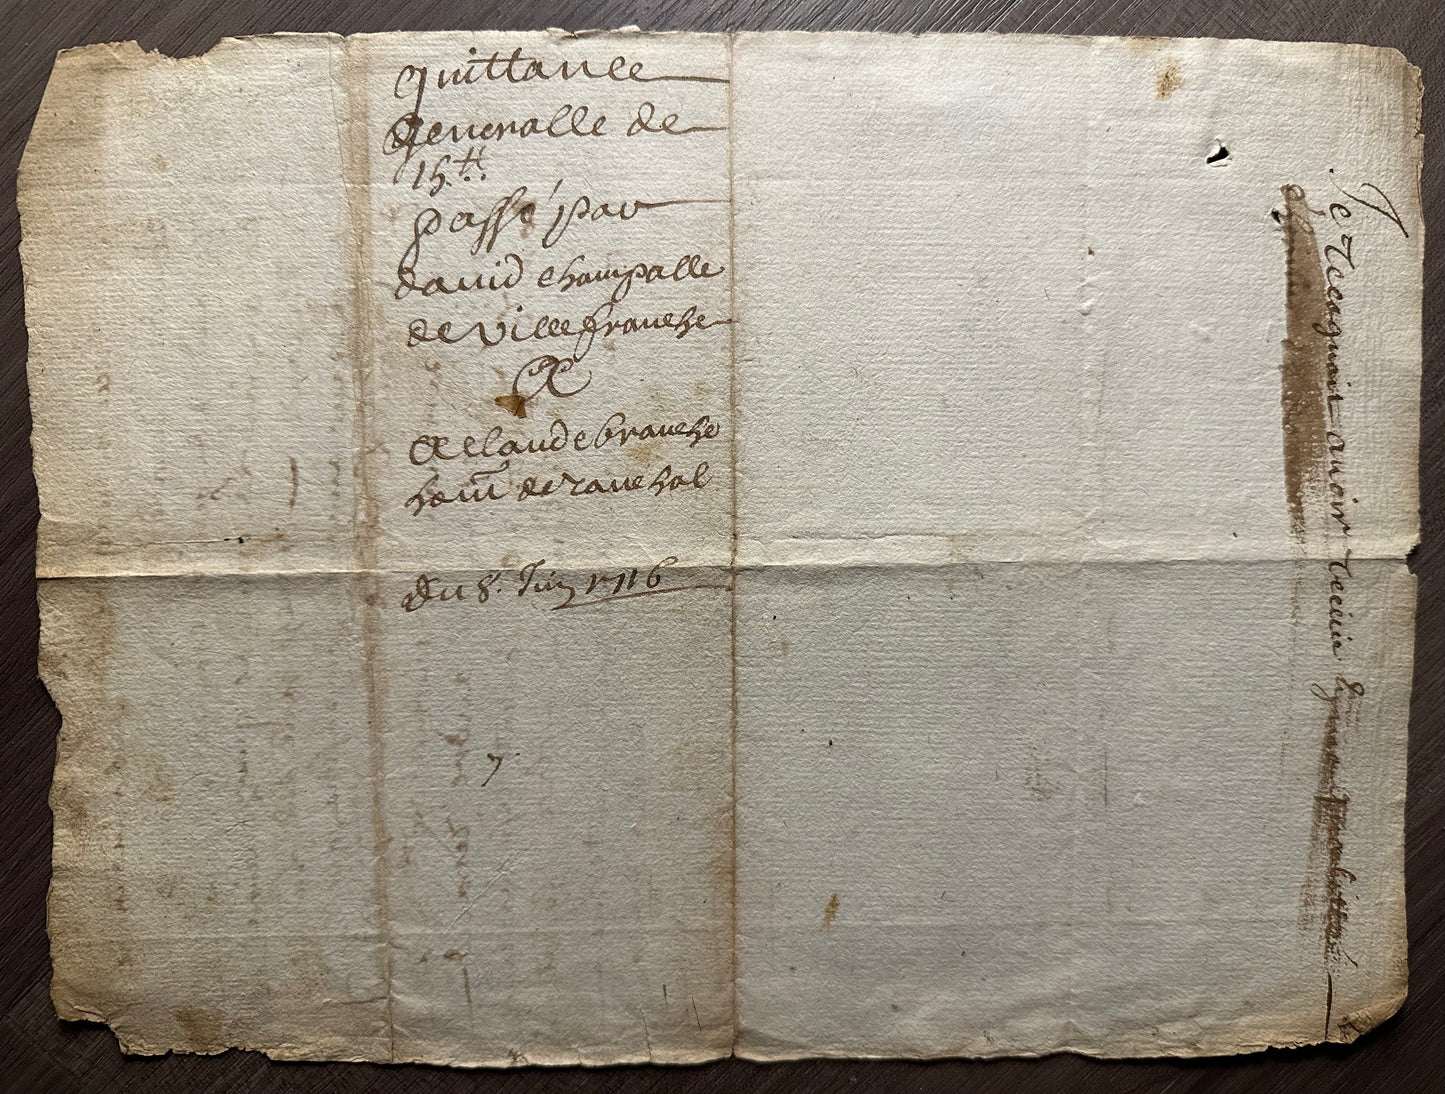 quittance
generalle de
15.tt.
passé par
david champalle
de ville franche
A
A claude branche
hom de ranchal
du 8.e Juin 1716
7
Je recognoit avoir receu